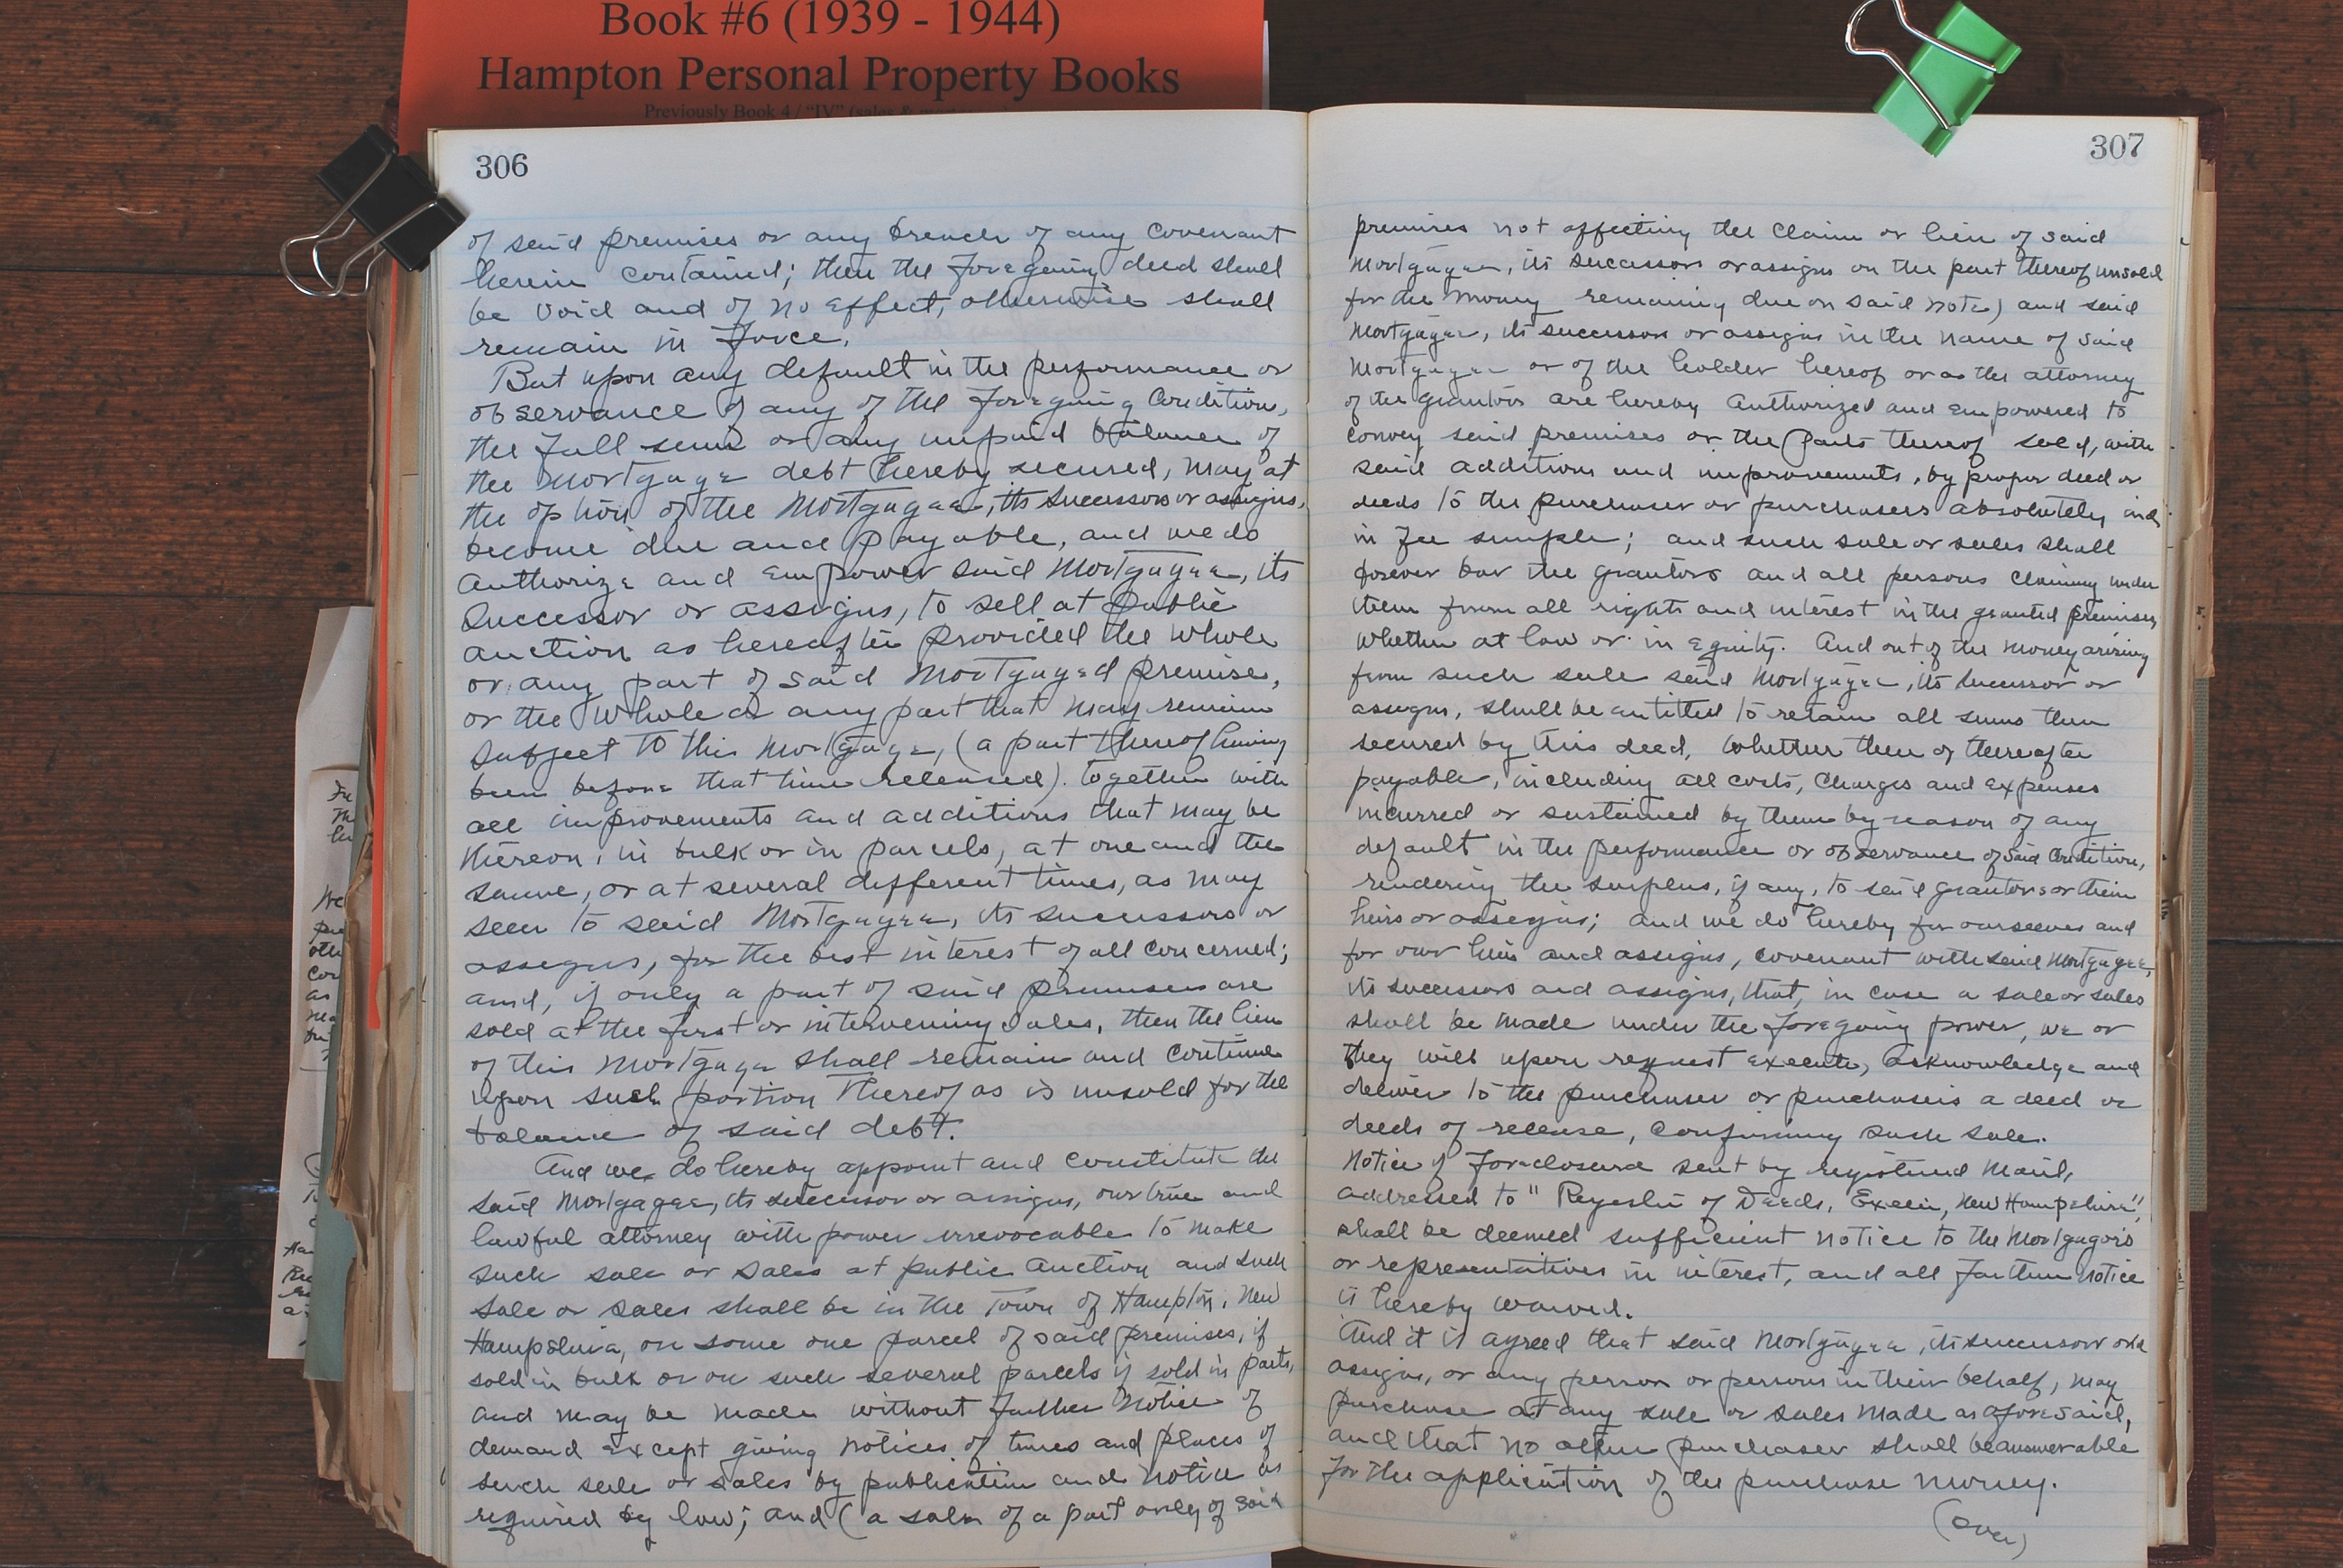 Book #6 (1939 - 1944)
Hampton Personal Property Books
Previously Book 4 / "IV" (sales &
306
of said premises or any breach of any covenant
herein contained; then the foregoing deed shall
be void and of no effect, otherwise shall
remain in force.
But upon any default in the performance or
observance of any of the foregoing condition,
the full sum or any unpaid balance of
the mortgage debt hereby secured, may at
the option of the Mortgagee, its successors or assigns,
become due and payable, and we do
authorize and empower said Mortgagee, its
successor or assigns, to sell at public
auction as hereafter provided the whole
or any part of said Mortgaged premise,
or the whole or any part that may remain
subject to this mortgage, (a part thereof having
been before that time released). together with
all improvements and additions that may be
thereon, in bulk or in parcels, at one and the
same, or at several different times, as may
seem to said Mortgagee, its successors or
assigns, for the best interest of all concerned;
and, if only a part of said premises are
sold at the first or intervening sales, then the lien
of this mortgage shall remain and continue
upon such portion thereof as is unsold for the
balance of said debt.
And we do hereby appoint and constitute the
said Mortgagee, its successor or assigns, our true and
lawful attorney with power irrevocable to make
such sale or sales at public auction and such
sale or sales shall be in the Town of Hampton, New
Hampshire, on some one parcel of said premises, if
sold in bulk or on such several parcels if sold in parts,
and may be made without further notice of
demand except giving notices of times and places of
such sale or sales by publication and notice as
required by law; and (a sale of a part only of said
307
premises not affecting the claim or lien of said
Mortgagee, its successors or assigns on the part thereof unsold
for the money remaining due on said note) and said
Mortgagee, its successors or assigns in the name of said
Mortgagee or of the holder hereof or as the attorney
of the grantors are hereby authorized and empowered to
convey said premises or the parts thereof sold, with
said additions and improvements, by proper deed or
deeds to the purchaser or purchasers absolutely and
in fee simple; and such sale or sales shall
forever bar the grantors and all persons claiming under
them from all rights and interest in the granted premises,
whether at law or in equity. And out of the money arising
from such sale said Mortgagee, its successor or
assigns, shall be entitled to retain all sums then
secured by this deed, whether then or thereafter
payable, including all costs, charges and expenses
incurred or sustained by them by reason of any
default in the performance or observance of said condition,
rendering the surplus, if any, to said grantors or their
heirs or assigns; and we do hereby for ourselves and
for our heirs and assigns, covenant with said Mortgagee,
its successors and assigns, that, in case a sale or sales
shall be made under the foregoing power, we or
they will upon request execute, acknowledge and
deliver to the purchaser or purchasers a deed or
deeds of release, confirming such sale.
Notice of foreclosure sent by registered mail,
addressed to "Register of Deeds, Exeter, New Hampshire",
shall be deemed sufficient notice to the Mortgagors
or representatives in interest, and all further notice
is hereby waived.
And it is agreed that said Mortgagee, its successors and
assigns, or any person or persons in their behalf, may
purchase at any sale or sales made as aforesaid,
and that no other purchaser shall be answerable
for the application of the purchase money.
(over)